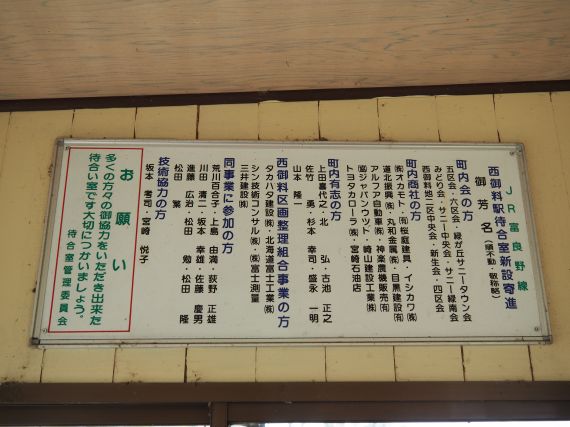 JR富良野線
西御料駅待合室新設寄進
御芳名（順不動・敬称略）
町内会の方
五区会、六区会・緑が丘サニータウン会
みどり会・サニー中央会・サニー緑南会
西御料地二区中央会、新生会・四区会
町内商社の方
㈱オカモト・㈲桜庭建具・イシカワ㈱
道北振興㈱・丸和金属㈱・目黒建設㈲
アルファ自動車㈱・神楽農機販売㈲
㈲ジャパンウント・崎山建設工業㈱
トヨタカローラ㈱・宮崎石油店
町内有志の方
上田喜代之・北 弘・古池 正之
佐竹 勇・杉本 幸司・盛永 一明
山本 隆一
西御料区画整理組合事業の方
タカハタ建設㈱・北海道富士工業㈱
シン技術コンサル㈱・㈱富士測量
三井建設㈱
同事業に参加の方
荒川百合子・上島 由満・荻野 正雄
川田 清二・坂本 幸雄・佐藤 慶男
進藤 広治・松田 勉・松田 隆
松田 繁
技術協力の方
坂本 考司・宮崎 悦子
お願い
多くの方々の御協力をいただき出来た
待合い室です大切につかいましょう。
待合室管理委員会